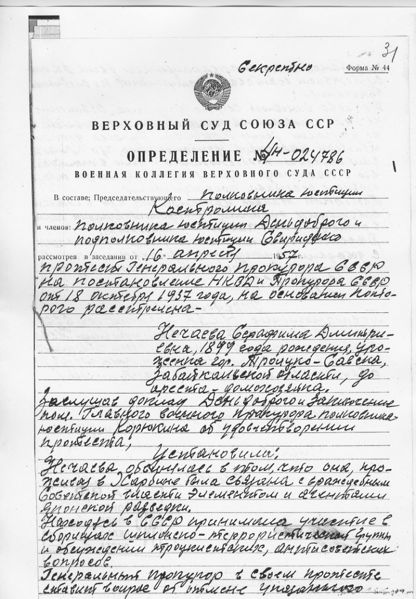 31
Секретно
Форма № 44
ВЕРХОВНЫЙ СУД СОЮЗА ССР
ОПРЕДЕЛЕНИЕ № 4н-024786
ВОЕННАЯ КОЛЛЕГИЯ ВЕРХОВНОГО СУДА СССР
В составе: Председательствующего полковника юстиции
Костромина
и членов: полковника юстиции Дендоброго и
подполковника юстиции Свириденко
рассмотрев в заседании от 16 апреля 1957 г.
протесты Генерального прокурора СССР
на постановление НКВД и Прокурора СССР
от 18 октября 1937 года, на основании кото-
рого расстреляна –
Нечаева Серафима Дмитри-
евна, 1899 года рождения, уро-
женка гор. Троицко-Савска,
Забайкальской области, до
ареста – домохозяйка,
Заслушав доклад Дендоброго и заключение
пом. Главного военного прокурора полковника
юстиции Корюкина об удовлетворении
протеста,
Установила:
Нечаева обвинялась в том, что она, про-
живая в Харбине была связана с враждебным
Советской власти элементом и агентами
японской разведки.
Находясь в СССР принимала участие в
сборищах шпионско-террористической группы
и обсуждении троцкистских, антисоветских
вопросов.
Генеральный прокурор в своем протесте
ставит вопрос об отмене указанного